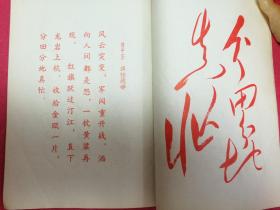 分田分地
真忙
风云突变，军阀重开战。洒
向人间都是怨，一枕黄粱再
现。 红旗跃过汀江，直下
龙岩上杭。收拾金瓯一片，
分田分地真忙。